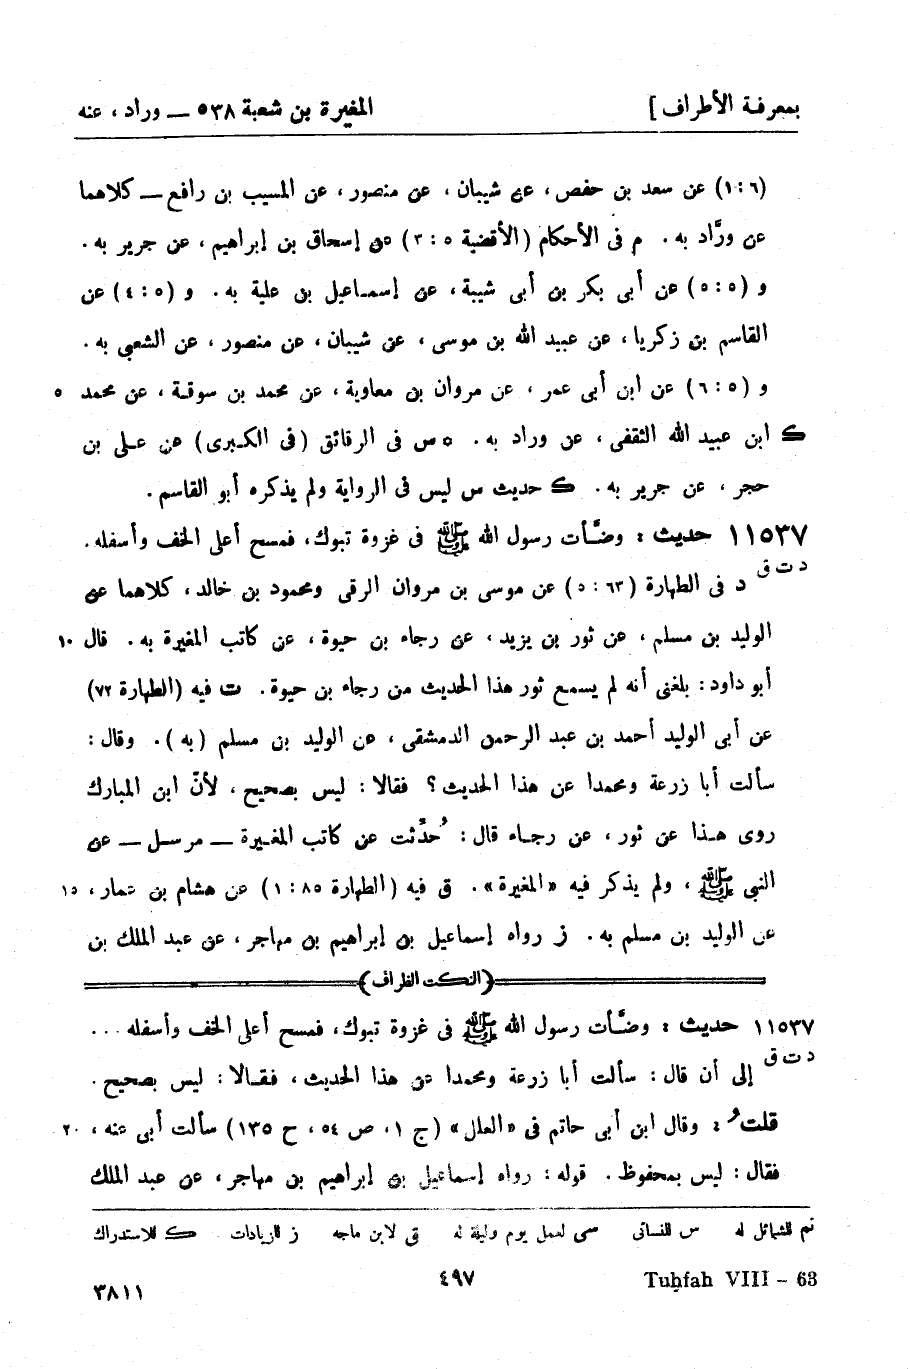 بمعرفة الأطراف ] المغيرة بن شعبة ٥٣٨ ــ وراد ، عنه
(٦ : ١) عن سعد بن حفص ، عن شيبان ، عن منصور ، عن المسيب بن رافع ــ كلاهما
عن ورَّاد به . م فى الأحكام (الأقضية ٥ : ٣) عن إسحاق بن إبراهيم ، عن جرير به .
و (٥ : ٥) عن أبى بكر بن أبى شيبة ، عن إسمـاعيل بن علية به . و (٥ : ٤) عن
القاسم بن زكريا ، عن عبيد الله بن موسى ، عن شيبان ، عن منصور ، عن الشعبى به .
و (٥ : ٦) عن ابن أبى عمر ، عن مروان بن معاوية ، عن محمد بن سوقـة ، عن محمد ٥
ك ابن عبيد الله الثقفى ، عن وراد به . ٥ س فى الرقائق (فى الكـبرى) عن عـلى بن
حجر ، عن جرير به . ك حديث س ليس فى الرواية ولم يذكره أبو القاسم .
١١٥٣٧ حديث : وضَّأت رسول الله ﷺ فى غزوة تبوك ، فمسح أعلى الخف وأسفله .
د ت ق د فى الطهارة (٦٣ : ٥) عن موسى بن مروان الرقى ومحمود بن خالد ، كلاهما عن
الوليد بن مسلم ، عن ثور بن يزيد ، عن رجاء بن حيوة ، عن كاتب المغيرة به . قال ١٠
أبو داود : بلغنى أنه لم يسمع ثور هذا الحديث من رجاء بن حيوة . ت فيه (الطهارة ٧٢)
عن أبى الوليد أحمد بن عبد الرحمن الدمشقى ، عن الوليد بن مسلم (به) . وقال :
سألت أبا زرعة ومحمدا عن هذا الحديث ؟ فقالا : ليس بصحيح ، لأنّ ابن المبارك
روى هـذا عن ثور ، عن رجـاء قال : حُدِّثت عن كاتب المغـيرة ــ مرسـل ــ عن
النبى ﷺ ، ولم يذكر فيه «المغيرة» . ق فيه (الطهارة ٨٥ : ١) عن هشام بن عمار ، ١٥
عن الوليد بن مسلم به . ز رواه إسماعيل بن إبراهيم بن مهاجر ، عن عبد الملك بن
(النكت الظراف)
١١٥٣٧ حديث : وضَّأت رسول الله ﷺ فى غزوة تبوك ، فمسح أعلى الخف وأسفله ...
د ت ق إلى أن قال : سألت أبا زرعة ومحمدا عن هذا الحديث ، فقـالا : ليس بصحيح .
قلتُ : وقال ابن أبى حاتم فى «العلل» (ج ١ ، ص ٥٤ ، ح ١٣٥) سألت أبى عنه ، ٢٠
فقال : ليس بمحفوظ . قوله : رواه إسماعيل بن إبراهيم بن مهاجر ، عن عبد الملك
تم للشمائل له س للنسائى سى لعمل يوم وليلة له ق لابن ماجه ز للزيادات ك للاستدراك
Tuḥfah VIII – 63 ٤٩٧ ٣٨١١